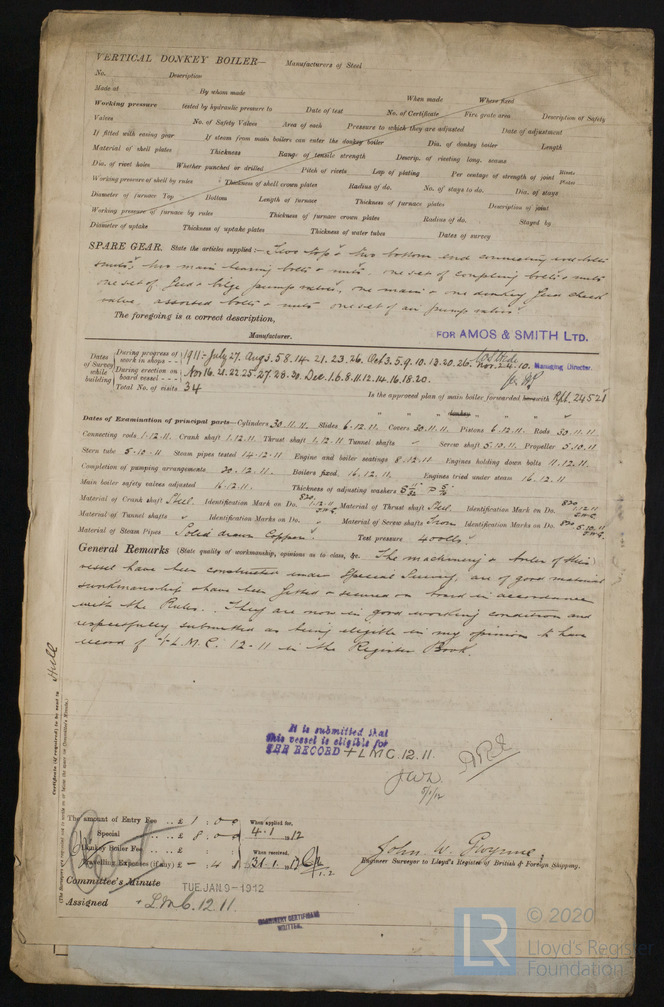 VERTICAL DONKEY BOILER— Manufacturers of Steel
No. Description
Made at By whom made When made Where fixed
Working pressure tested by hydraulic pressure to Date of test No. of Certificate Fire grate area Description of Safety
Valves No. of Safety Valves Area of each Pressure to which they are adjusted Date of adjustment
If fitted with easing gear If steam from main boilers can enter the donkey boiler Dia. of donkey boiler Length
Material of shell plates Thickness Range of tensile strength Descrip. of riveting long. seams
Dia. of rivet holes Whether punched or drilled Pitch of rivets Lap of plating Per centage of strength of joint Rivets Plates
Working pressure of shell by rules Thickness of shell crown plates Radius of do. No. of stays to do. Dia. of stays
Diameter of furnace Top Bottom Length of furnace Thickness of furnace plates Description of joint
Working pressure of furnace by rules Thickness of furnace crown plates Radius of do. Stayed by
Diameter of uptake Thickness of uptake plates Thickness of water tubes Dates of survey
SPARE GEAR. State the articles supplied:— Two top & two bottom end connecting rod bolts
& nuts, two main bearing bolts & nuts, one set of coupling bolts & nuts
one set of feed & bilge pump valves, one main & one donkey feed check
valve, assorted bolts & nuts one set of air pump valves
The foregoing is a correct description,
Manufacturer. FOR AMOS & SMITH LTD.
Managing Director.
Dates of Survey while building
During progress of work in shops - - 1911:- July 27. Aug 3. 5. 8. 14. 21. 23. 26. Oct 3. 5. 9. 10. 13. 20. 26. Nov. 2. 4. 10.
During erection on board vessel - - - Nov 16. 21. 22. 25. 27. 28. 30. Dec. 1. 6. 8. 11. 12. 14. 16. 18. 20.
Total No. of visits 34
Is the approved plan of main boiler forwarded herewith Rpt. 24521
" " donkey " " "
Dates of Examination of principal parts—Cylinders 30.11.11. Slides 6.12.11. Covers 30.11.11. Pistons 6.12.11. Rods 30.11.11.
Connecting rods 1.12.11. Crank shaft 1.12.11. Thrust shaft 1.12.11. Tunnel shafts " Screw shaft 5.10.11. Propeller 5.10.11
Stern tube 5.10.11 Steam pipes tested 14.12.11 Engine and boiler seatings 8.12.11. Engines holding down bolts 11.12.11.
Completion of pumping arrangements 20.12.11. Boilers fixed 16.12.11. Engines tried under steam 16.12.11
Main boiler safety valves adjusted 16.12.11. Thickness of adjusting washers
Material of Crank shaft Steel. Identification Mark on Do. 820 1.12.11 Material of Thrust shaft Steel. Identification Mark on Do. 820 1.12.11
Material of Tunnel shafts " Identification Marks on Do. " Material of Screw shafts Iron Identification Marks on Do. 820 5.10.11
Material of Steam Pipes Solid drawn Copper Test pressure 400 lbs
General Remarks (State quality of workmanship, opinions as to class, &c. The machinery & boiler of this
vessel have been constructed under Special Survey, are of good material
& workmanship & have been fitted & secured on board in accordance
with the Rules. They are now in good working condition and
respectfully submitted as being eligible in my opinion to have
record of + L.M.C. 12-11 in the Register Book.
Certificate (if required) to be sent to Hull
(The Surveyors are requested not to write on or below the space for Committee's Minute.)
It is submitted that
this vessel is eligible for
THE RECORD + LMC. 12.11.
The amount of Entry Fee .. £ 1 : 0 : 0 When applied for,
Special .. .. £ 8 : 0 : 0 4.1.1912
Donkey Boiler Fee .. .. £ : : When received,
Travelling Expenses (if any) £ — : 4 : 31.1.1912
John W. Gwynne
Engineer Surveyor to Lloyd's Register of British & Foreign Shipping.
Committee's Minute TUE. JAN. 9 - 1912
Assigned + LMC. 12.11.
MACHINERY CERTIFICATE
WRITTEN.
LR
© 2020
Lloyd's Register
Foundation